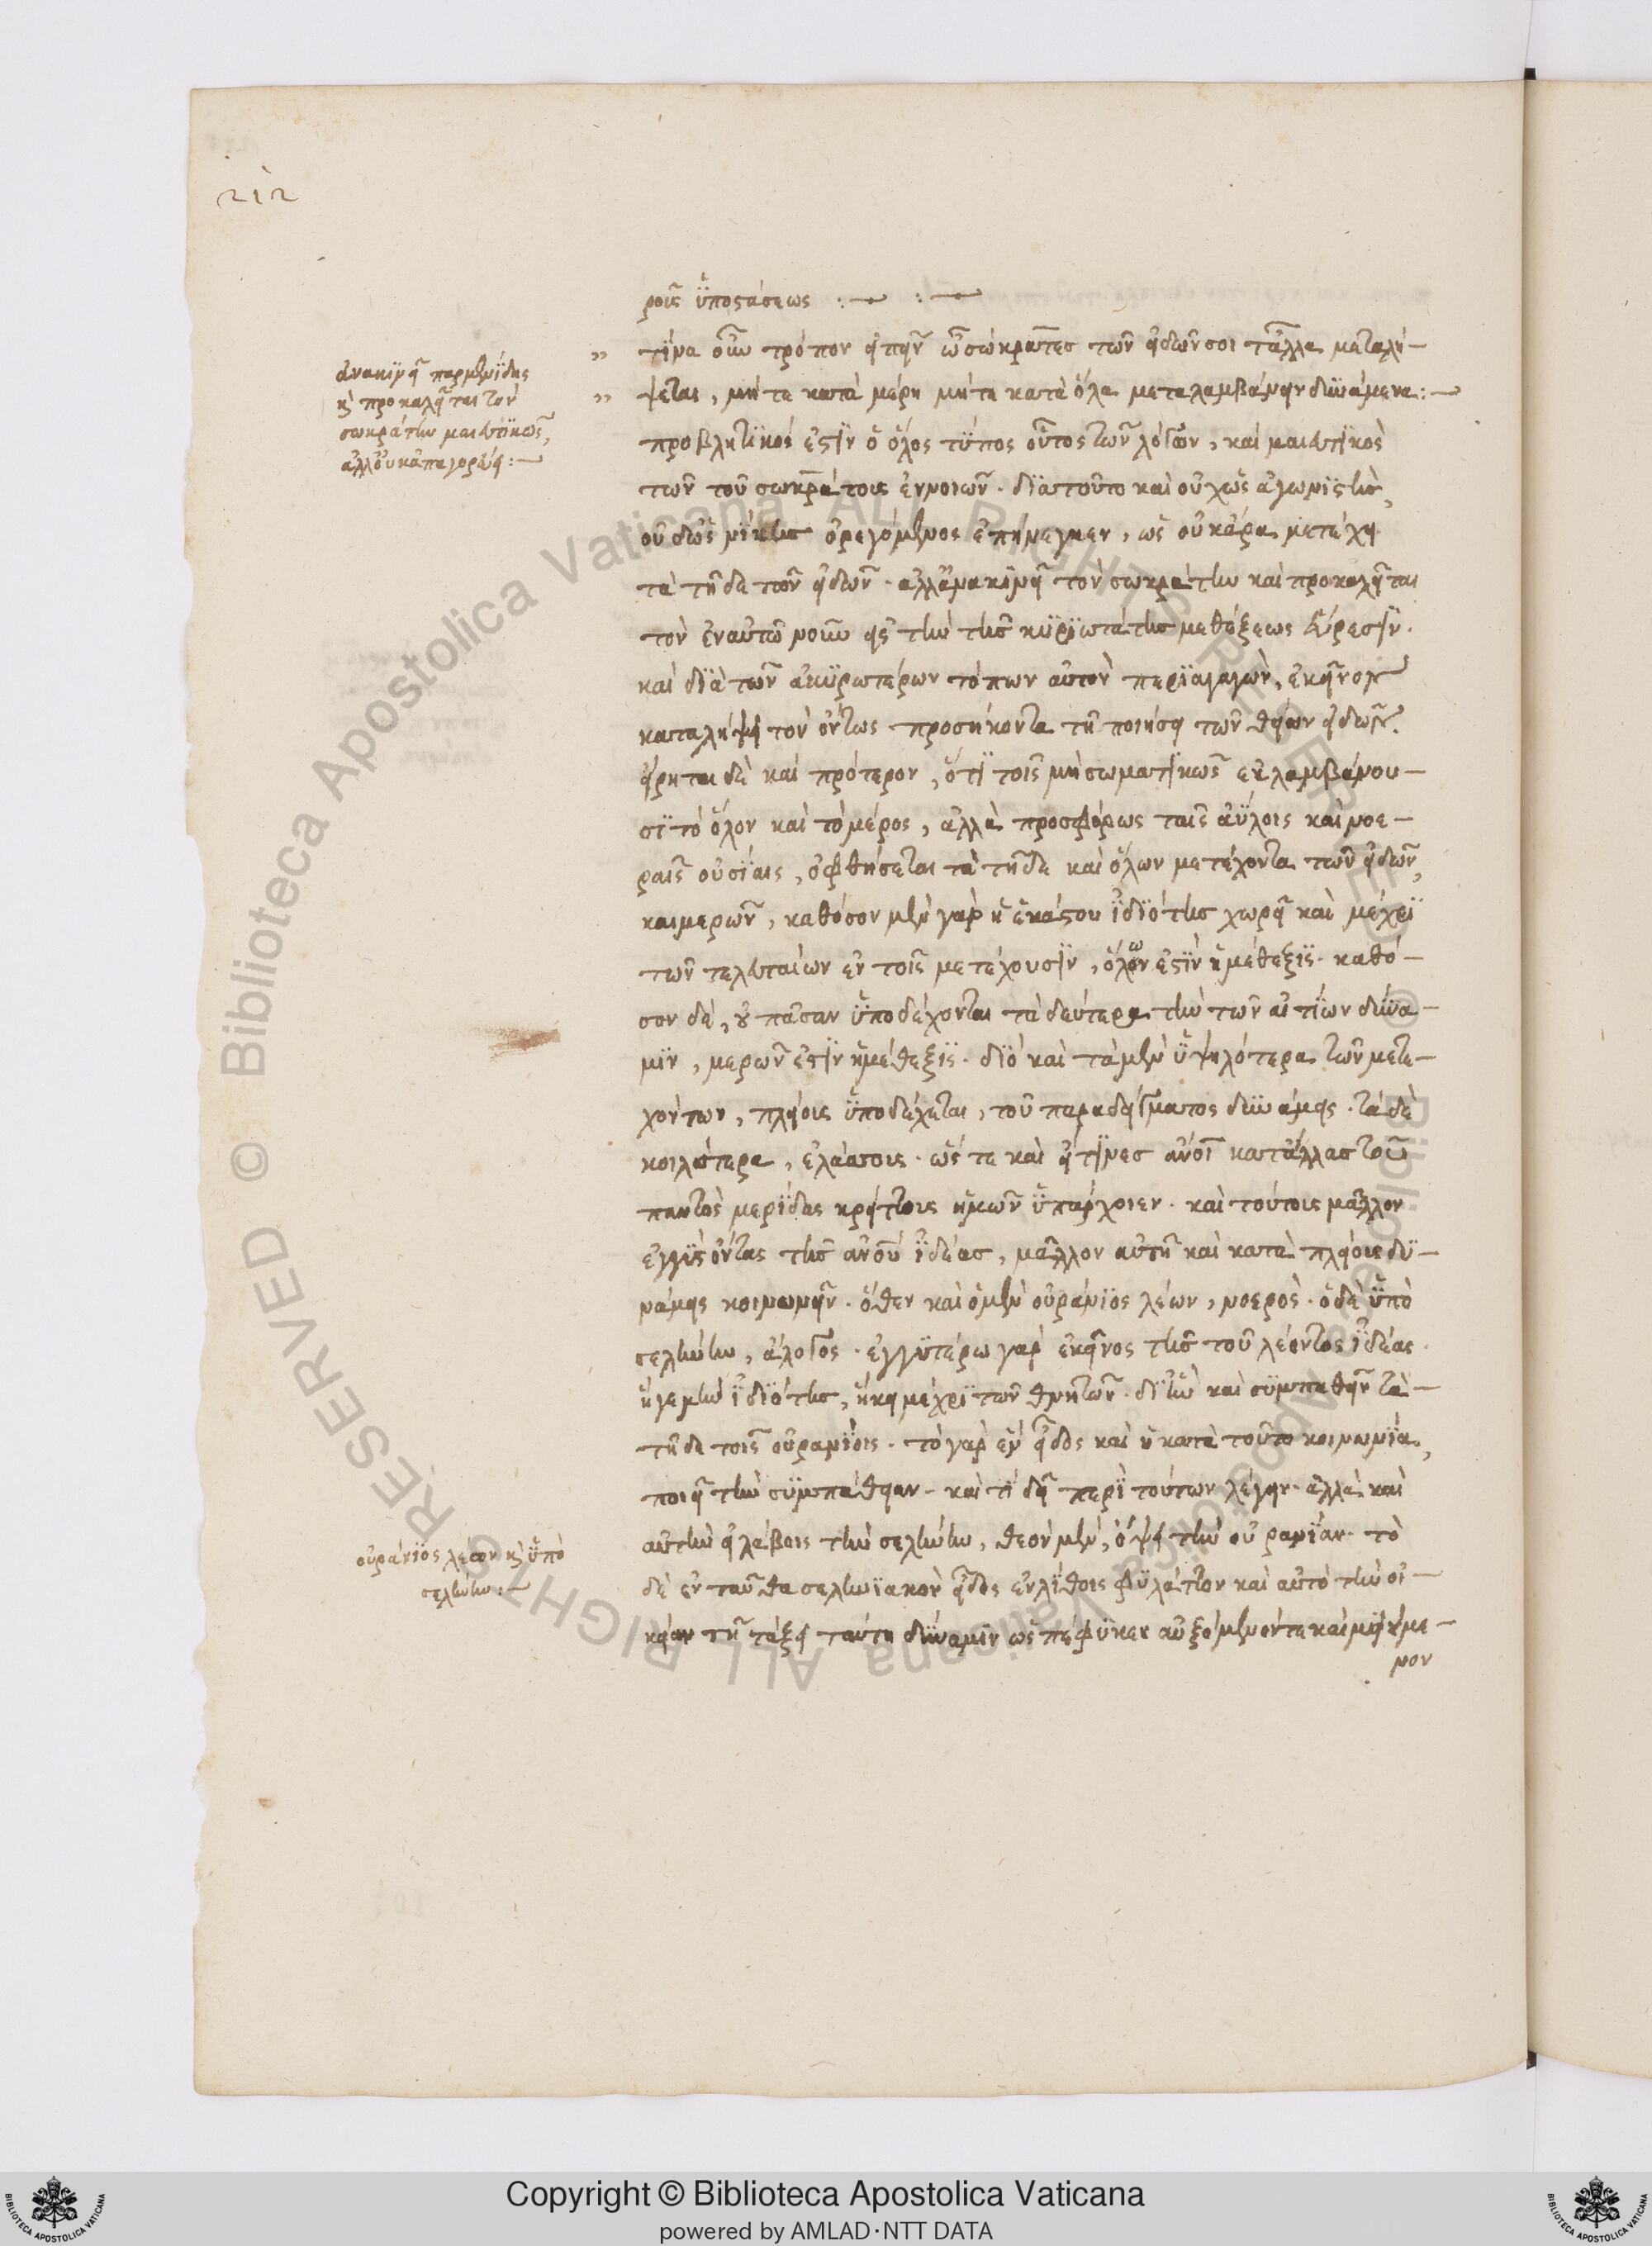 212
ροις ὑποστάσεως :—  :—
ἀνακινεῖ παρμενίδης
καὶ προκαλεῖται τὸν
σωκράτην μαιευτικῶς,
ἀλλ' οὐ κατηγορεῖ :—
" τίνα οὖν τρόπον εἰπεῖν ὦ σώκρατες τῶν εἰδῶν σοι τἆλλα μεταλή-
" ψεται, μήτε κατὰ μέρη μήτε κατὰ ὅλα μεταλαμβάνειν δυνάμενα :—
προβλητικός ἐστιν ὁ ὅλος τύπος οὗτος τῶν λόγων, καὶ μαιευτικὸς
τῶν τοῦ σωκράτους ἐννοιῶν. διὰ τοῦτο καὶ οὐχ ὡς ἀγωνιστὴς,
οὐδ' ὡς νίκης ὀρεγόμενος ἐπήνεγκεν, ὡς οὐκ ἄρα μετέχει
τὰ τῇδε τῶν εἰδῶν. ἀλλ' ἀνακινεῖ τὸν σωκράτην καὶ προκαλεῖται
τὸν ἐν αὐτῶ νοῦν εἰς τὴν τῆς κυριωτάτης μεθέξεως εὕρεσιν.
καὶ διὰ τῶν ἀκυρωτέρων τόπων αὐτὸν περιαγαγὼν, ἐκεῖνον
καταλήψει τὸν ὄντως προσήκοντα τῇ ποιήσει τῶν θείων εἰδῶν.
εἴρηται δὲ καὶ πρότερον, ὅτι τοῖς μὴ σωματικῶς ἐκλαμβάνου-
σι τὸ ὅλον καὶ τὸ μέρος, ἀλλὰ προσφόρως ταῖς ἀΰλοις καὶ νοε-
ραῖς οὐσίαις, ὀφθήσεται τὰ τῇδε καὶ ὅλων μετέχοντα τῶν εἰδῶν,
καὶ μερῶν, καθόσον μὲν γὰρ ἡ ἑκάστου ἰδιότης χωρεῖ καὶ μέχρι
τῶν τελευταίων ἐν τοῖς μετέχουσιν, ὅλων ἐστὶν ἡ μέθεξις. καθό-
σον δὲ, οὐ πᾶσαν ὑποδέχονται τὰ δεύτερα τὴν τῶν αἰτίων δύνα-
μιν, μερῶν ἐστὶν ἡ μέθεξις. διὸ καὶ τὰ μὲν ὑψηλότερα τῶν μετε-
χόντων, πλείους ὑποδέχεται, τοῦ παραδείγματος δυνάμεις. τὰ δὲ
κοιλότερα, ἐλάσσους. ὥστε καὶ εἴ τινες ἄνοι κατ' ἄλλας τοῦ
παντὸς μερίδας κρείττους ἡμῶν ὑπάρχοιεν. καὶ τούτοις μᾶλλον
ἐγγὺς ὄντας τῆς ἀνου ἰδέας, μᾶλλον αὐτῇ καὶ κατὰ πλείους δυ-
νάμεις κοινωνεῖν. ὅθεν καὶ ὁ μὲν οὐράνιος λέων, νοερὸς. ὁ δὲ ὑπὸ
σελήνην, ἄλογος. ἐγγυτέρω γὰρ ἐκεῖνος τῆς τοῦ λέοντος ἰδέας.
ἥ γε μὴν ἰδιότης, ἥκει μέχρι τῶν θνητῶν. δι' ἣν καὶ συμπαθεῖν τὰ
τῇδε τοῖς οὐρανίοις. τὸ γὰρ ἓν εἶδος καὶ ἡ κατὰ τοῦτο κοινωνία,
ποιεῖ τὴν συμπάθειαν. καὶ τί δεῖ περὶ τούτων λέγειν. ἀλλὰ καὶ
οὐράνιος λέων καὶ ὑπὸ
σελήνην :—
αὐτὴν εἰ λάβοις τὴν σελήνην, θεὸν μὲν, ὄψει τὴν οὐρανίαν. τὸ
δὲ ἐνταῦθα σεληνιακὸν εἶδος ἐν λίθοις φυλάττον καὶ αὐτὸ τὴν οἰ-
κείαν τῇ τάξει ταύτη δύναμιν ὡς πέφυκεν αὐξόμενόν τε καὶ μειούμε-
νον